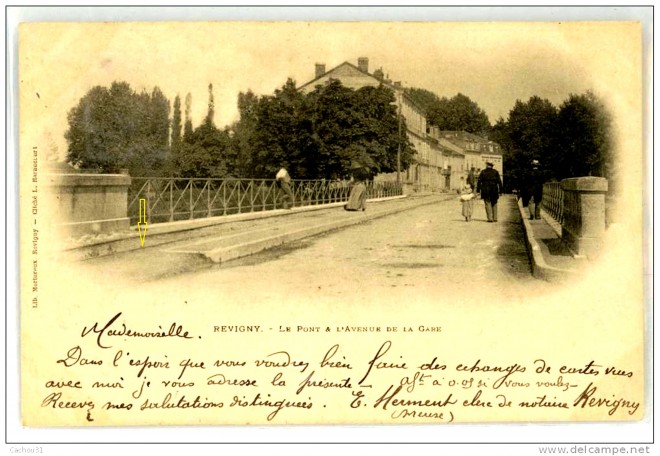 Lib. Martinvaux Revigny — Cliché L. Humbécourt
REVIGNY. - LE PONT & L'AVENUE DE LA GARE
Mademoiselle.
Dans l'espoir que vous voudrez bien faire des echanges de cartes vues
avec moi je vous adresse la présente — Afft à 0.05 si vous voulez -
Recevez mes salutations distinguées. E. Herment clerc de notaire Revigny
(Meuse)
Cachou31
www.delcampe.net